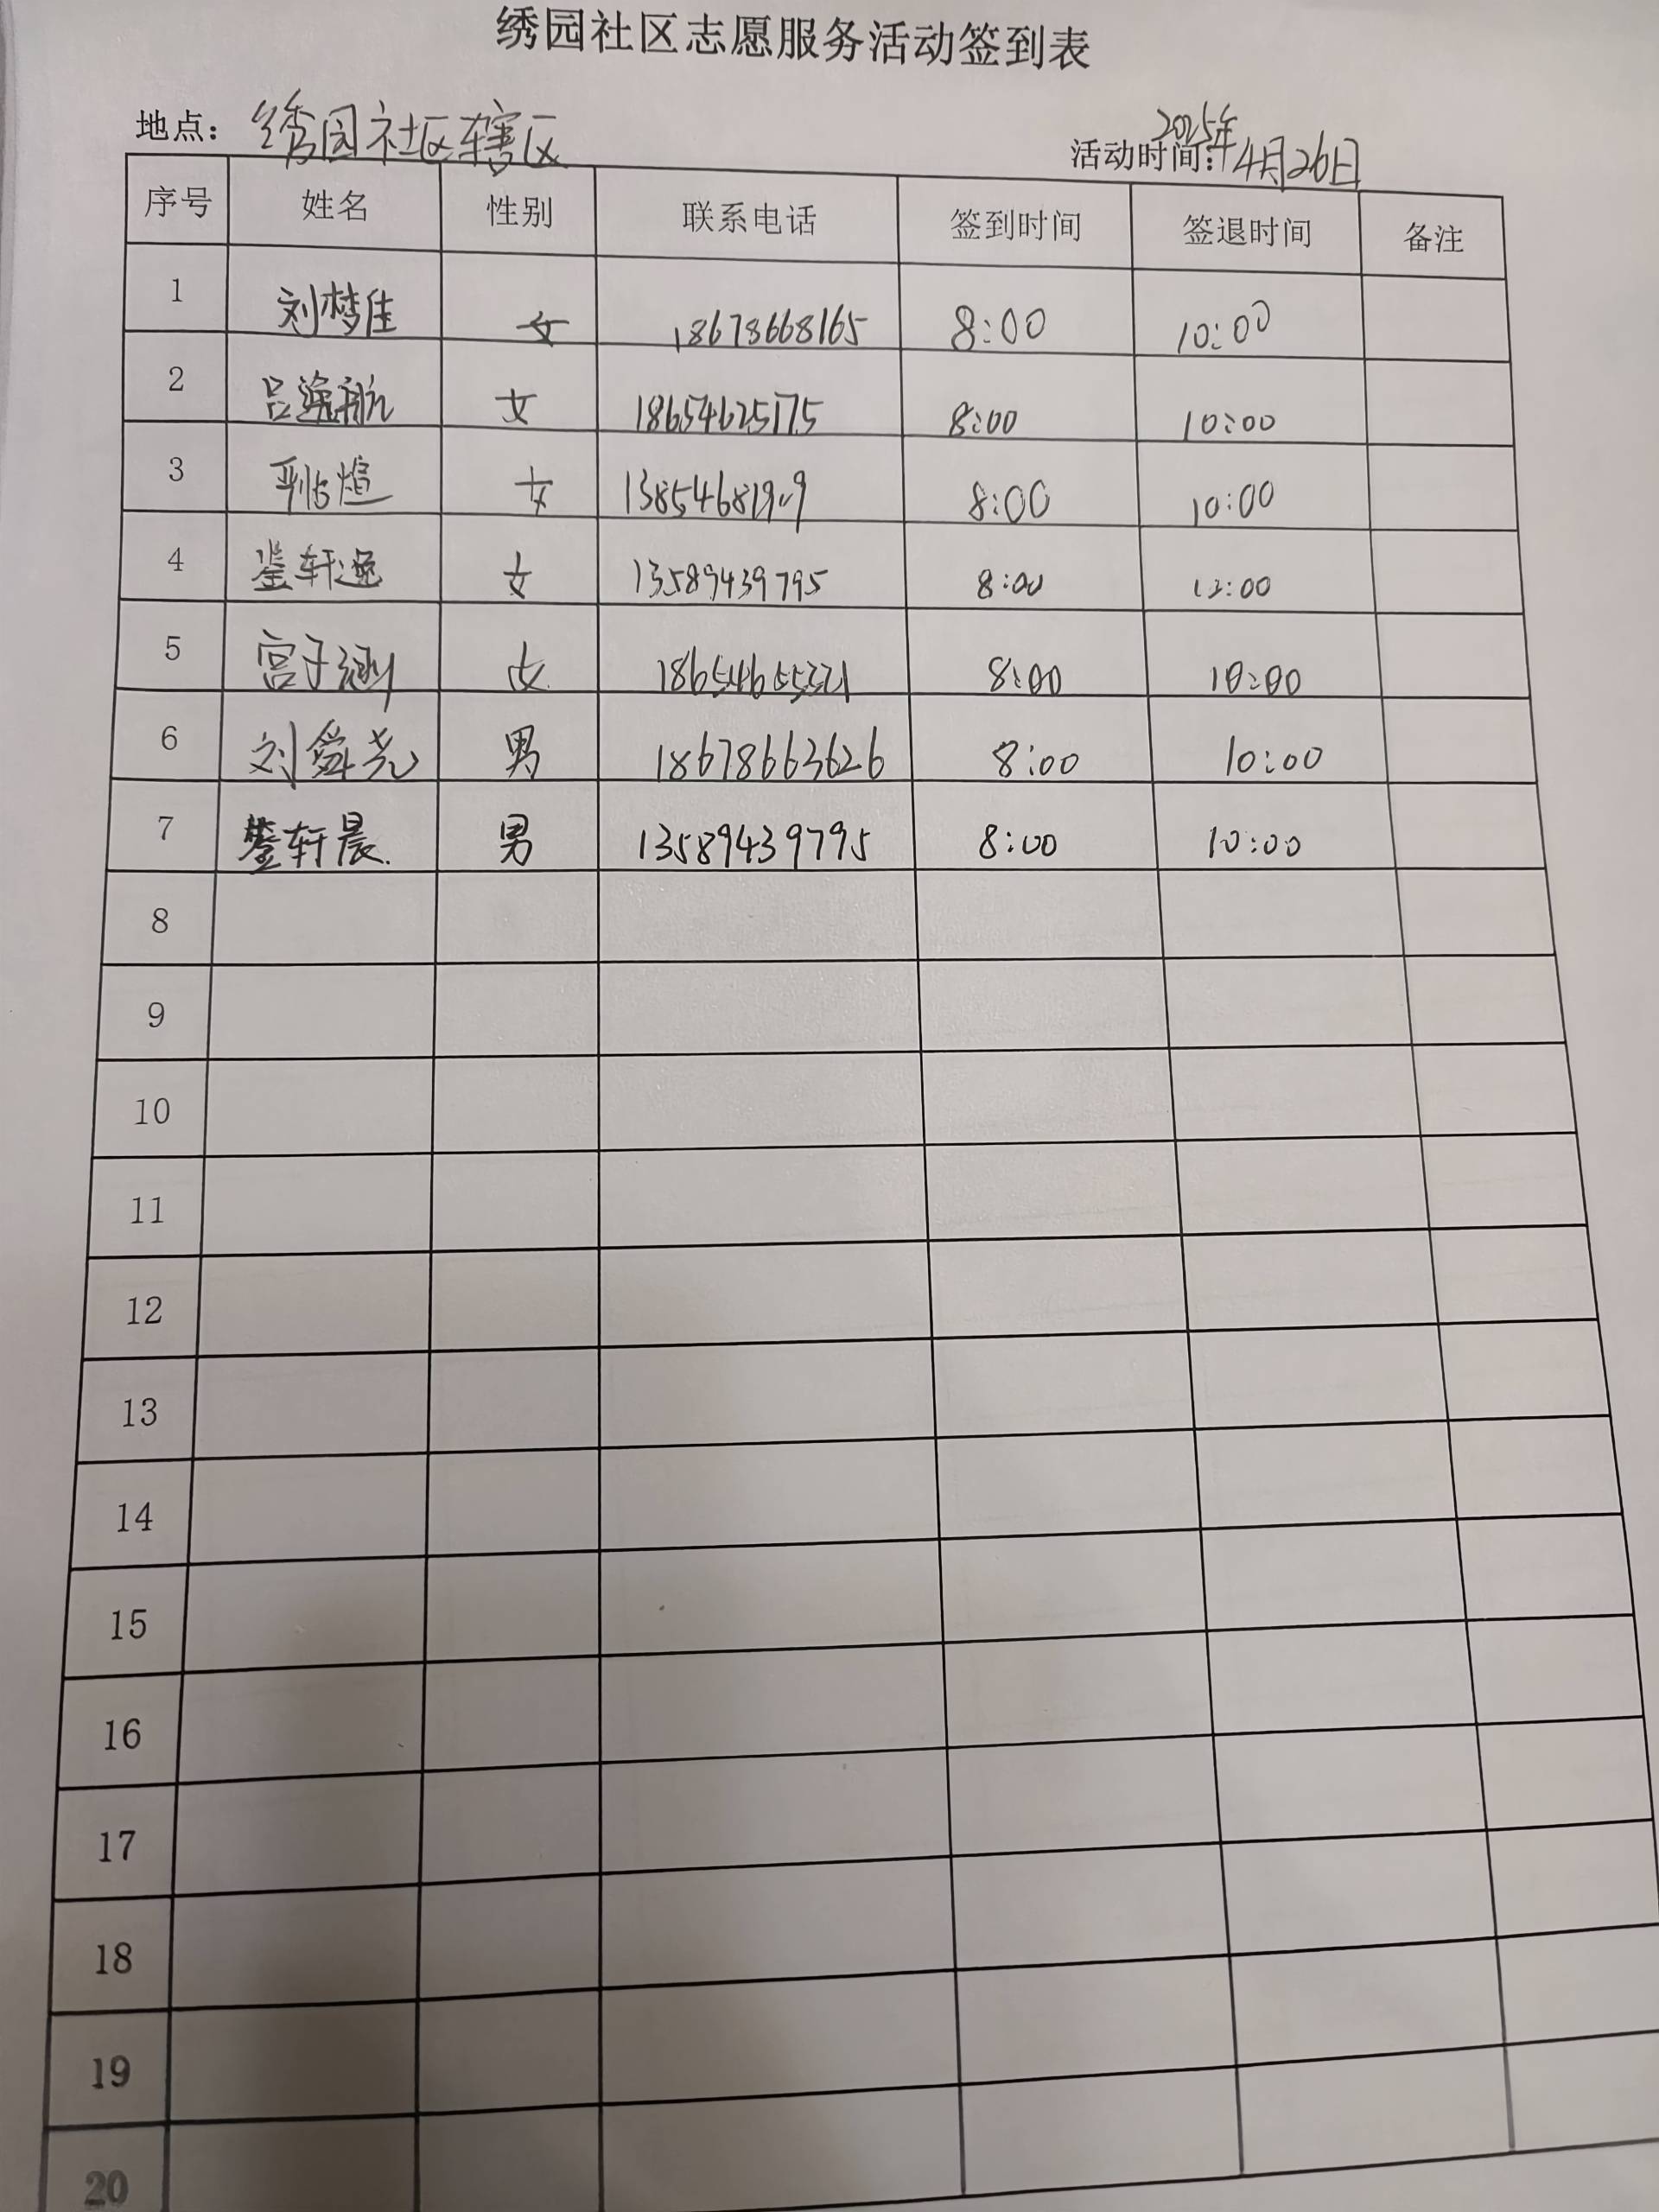 绣园社区志愿服务活动签到表
地点：绣园社区辖区 活动时间：2025年4月26日
序号 姓名 性别 联系电话 签到时间 签退时间 备注
1 刘梦佳 女 18678668165 8:00 10:00
2 吕逸航 女 18654625175 8:00 10:00
3 女 8:00 10:00
4 轩逸 女 13589439795 8:00 12:00
5 宫子涵 女 18654655321 8:00 10:00
6 刘舜尧 男 18678663626 8:00 10:00
7 轩晨 男 13589439795 8:00 10:00
8
9
10
11
12
13
14
15
16
17
18
19
20